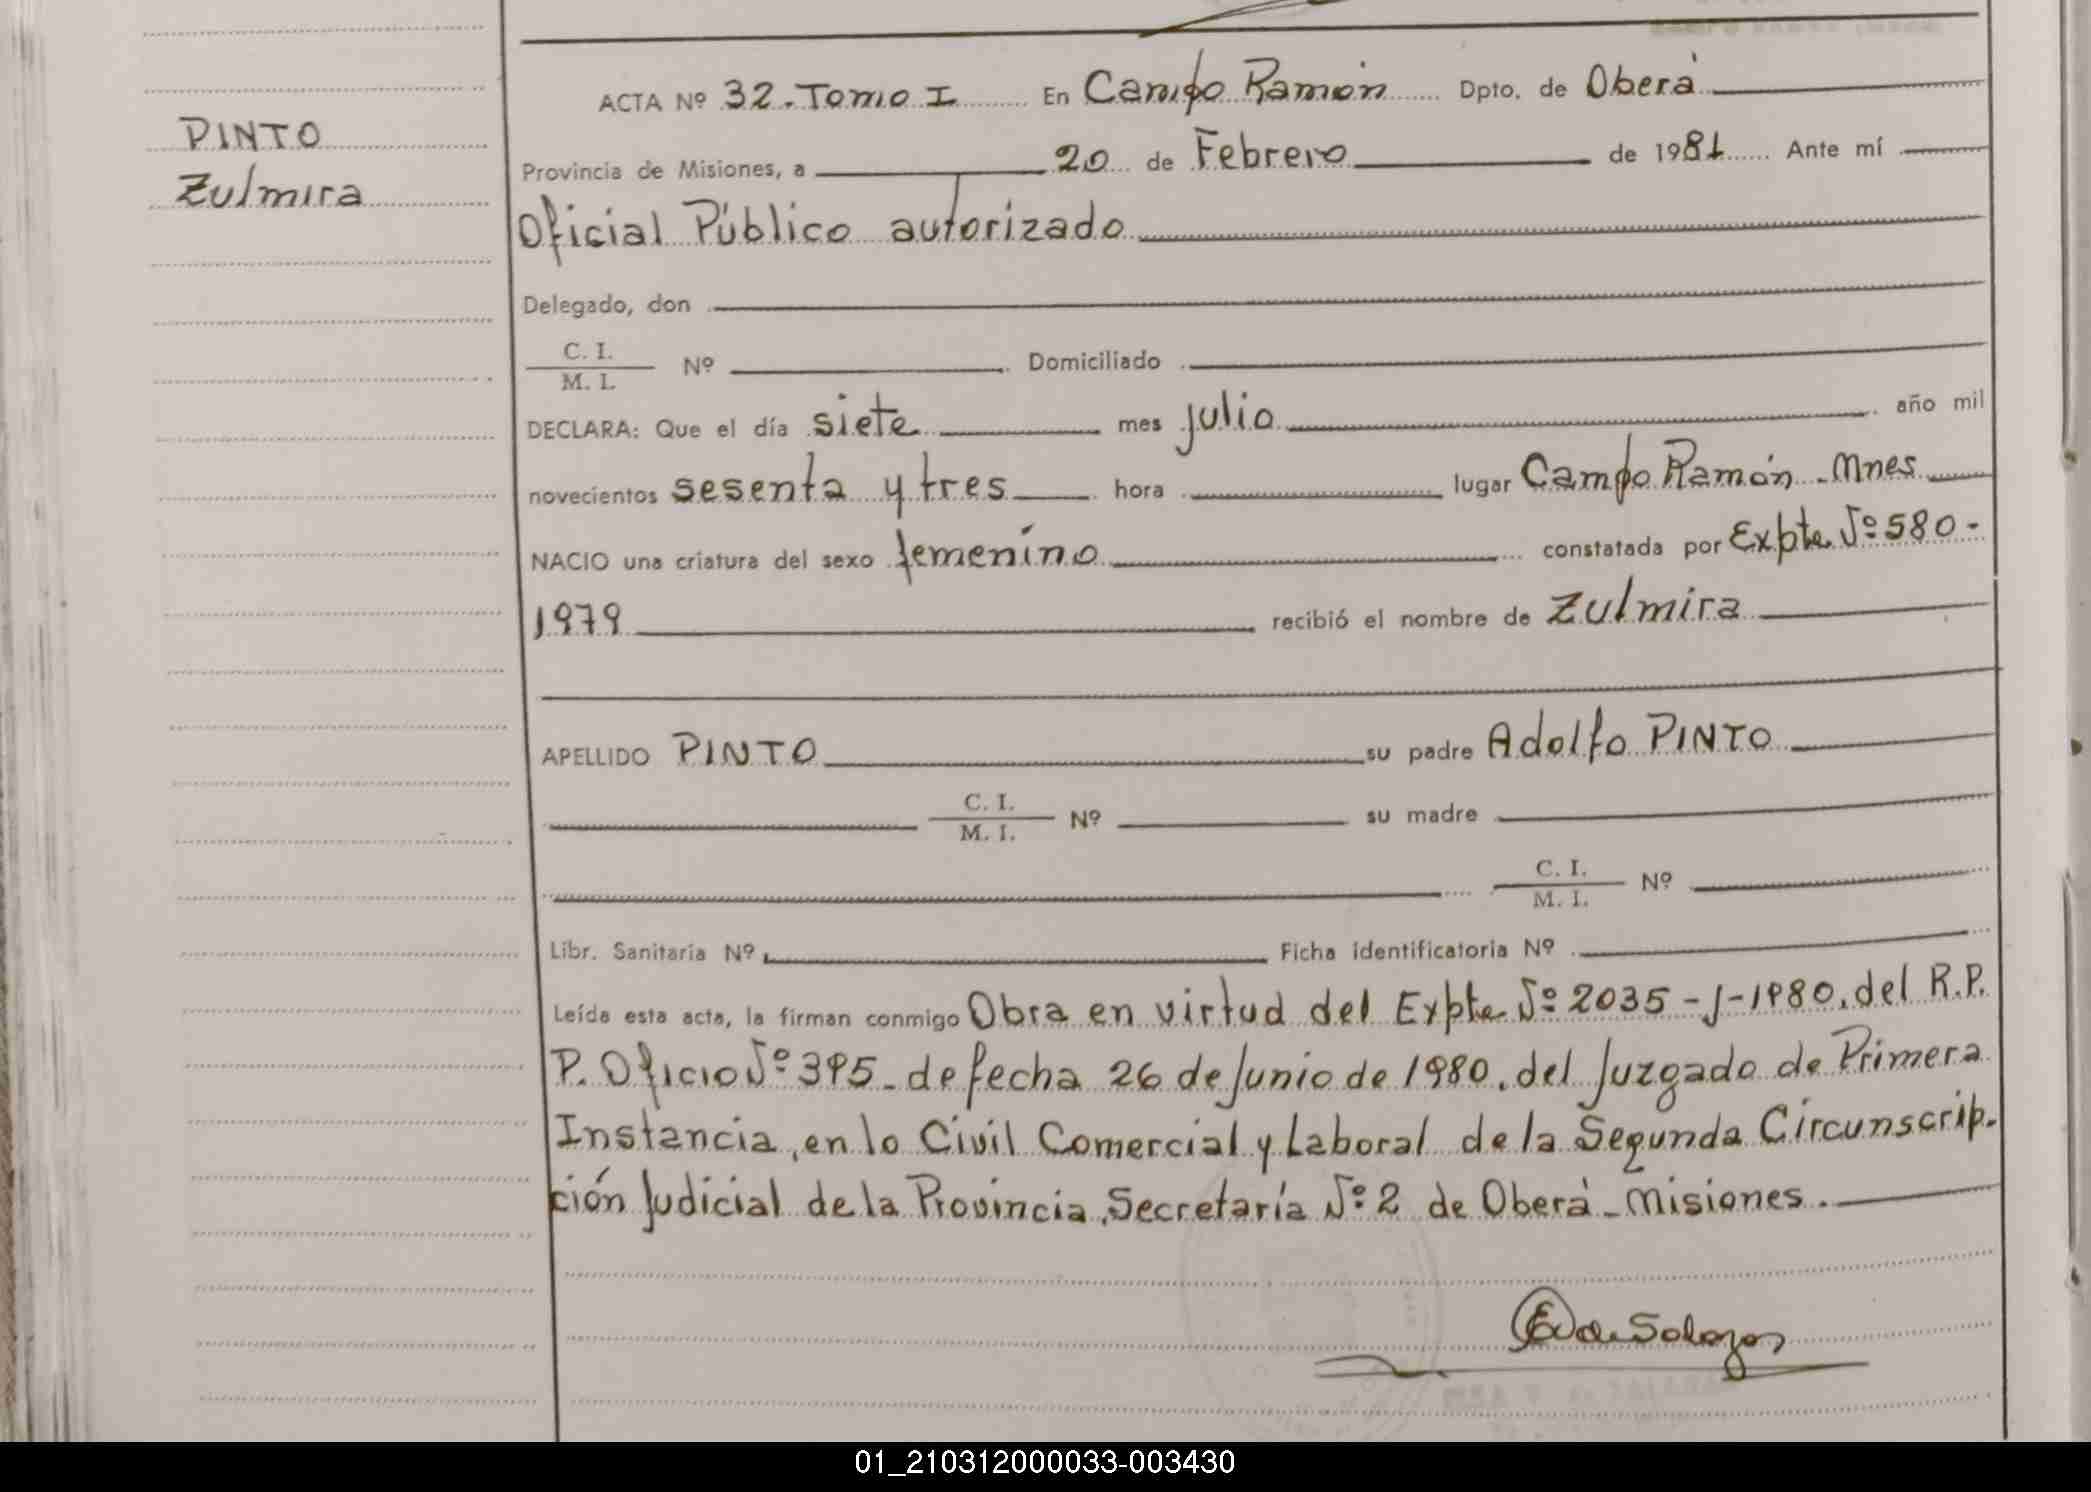 PINTO
Zulmira
ACTA Nº 32. Tomo I En Campo Ramón Dpto. de Oberá
Provincia de Misiones, a 20 de Febrero de 1981 Ante mí
Oficial Público autorizado
Delegado, don
C. I.
M. I. Nº Domiciliado
DECLARA: Que el día siete mes julio año mil
novecientos sesenta y tres hora lugar Campo Ramón - Mnes
NACIO una criatura del sexo femenino constatada por Expte Nº 580-
1979 recibió el nombre de Zulmira
APELLIDO PINTO su padre Adolfo PINTO
C. I.
M. I. Nº su madre
C. I.
M. I. Nº
Libr. Sanitaria Nº Ficha identificatoria Nº
Leída esta acta, la firman conmigo Obra en virtud del Expte Nº 2035-J-1980. del R.P.
P. Oficio Nº 395 - de fecha 26 de Junio de 1980. del Juzgado de Primera
Instancia, en lo Civil Comercial y Laboral de la Segunda Circunscrip-
ción Judicial de la Provincia, Secretaría Nº 2 de Oberá - Misiones.
01_210312000033-003430